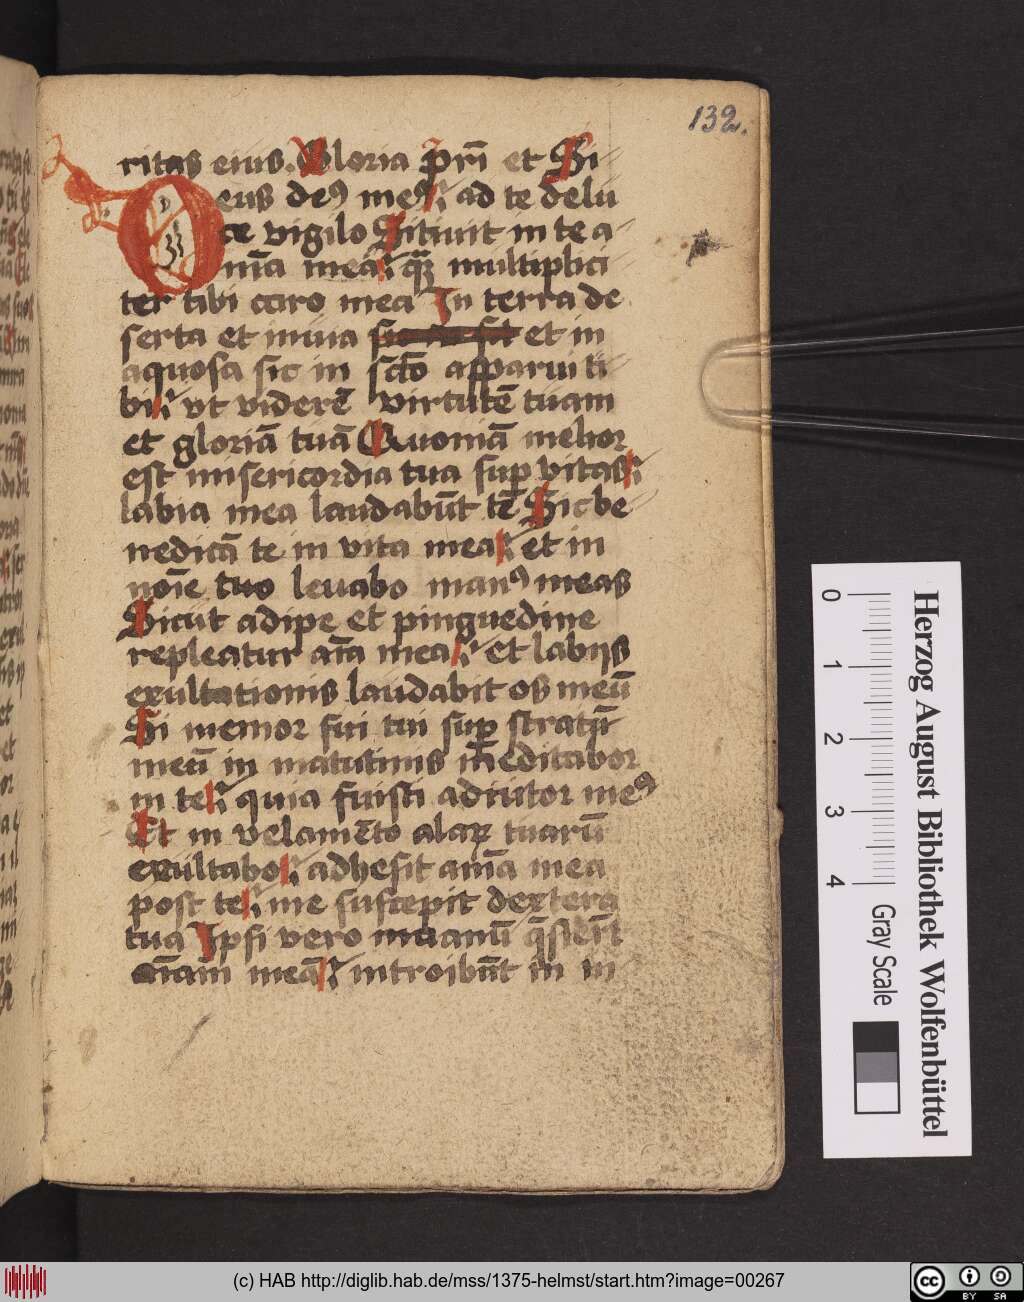 132.
ritas eius. Gloria pr̄i et Si
Deus deꝰ meꝰ ad te delu
ce vigilo Sitiuit in te a
nīa mea qꝫ multiplici
ter tibi caro mea In terra de
serta et inuia et in
aquosa sic in sc̄to apparui ti
bi vt viderē virtutē tuam
et gloriā tuā Quoniā melior
est misericordia tua sup vitas
labia mea laudabūt te Sic be
nedicā te in vita mea et in
noīe tuo leuabo manꝰ meas
Sicut adipe et pinguedine
repleatur aīa mea et labijs
exultationis laudabit os meū
Si memor fui tui sup stratū
meū in matutinis meditabor
in te quia fuisti adiutor meꝰ
Et in velamēto alaꝝ tuarū
exultabo adhesit anīa mea
post te me suscepit dextera
tua Ipsi vero in uanū q̄sierūt
anīam meā introibūt in in
Herzog August Bibliothek Wolfenbüttel
0 1 2 3 4
Gray Scale
(c) HAB http://diglib.hab.de/mss/1375-helmst/start.htm?image=00267
cc BY SA